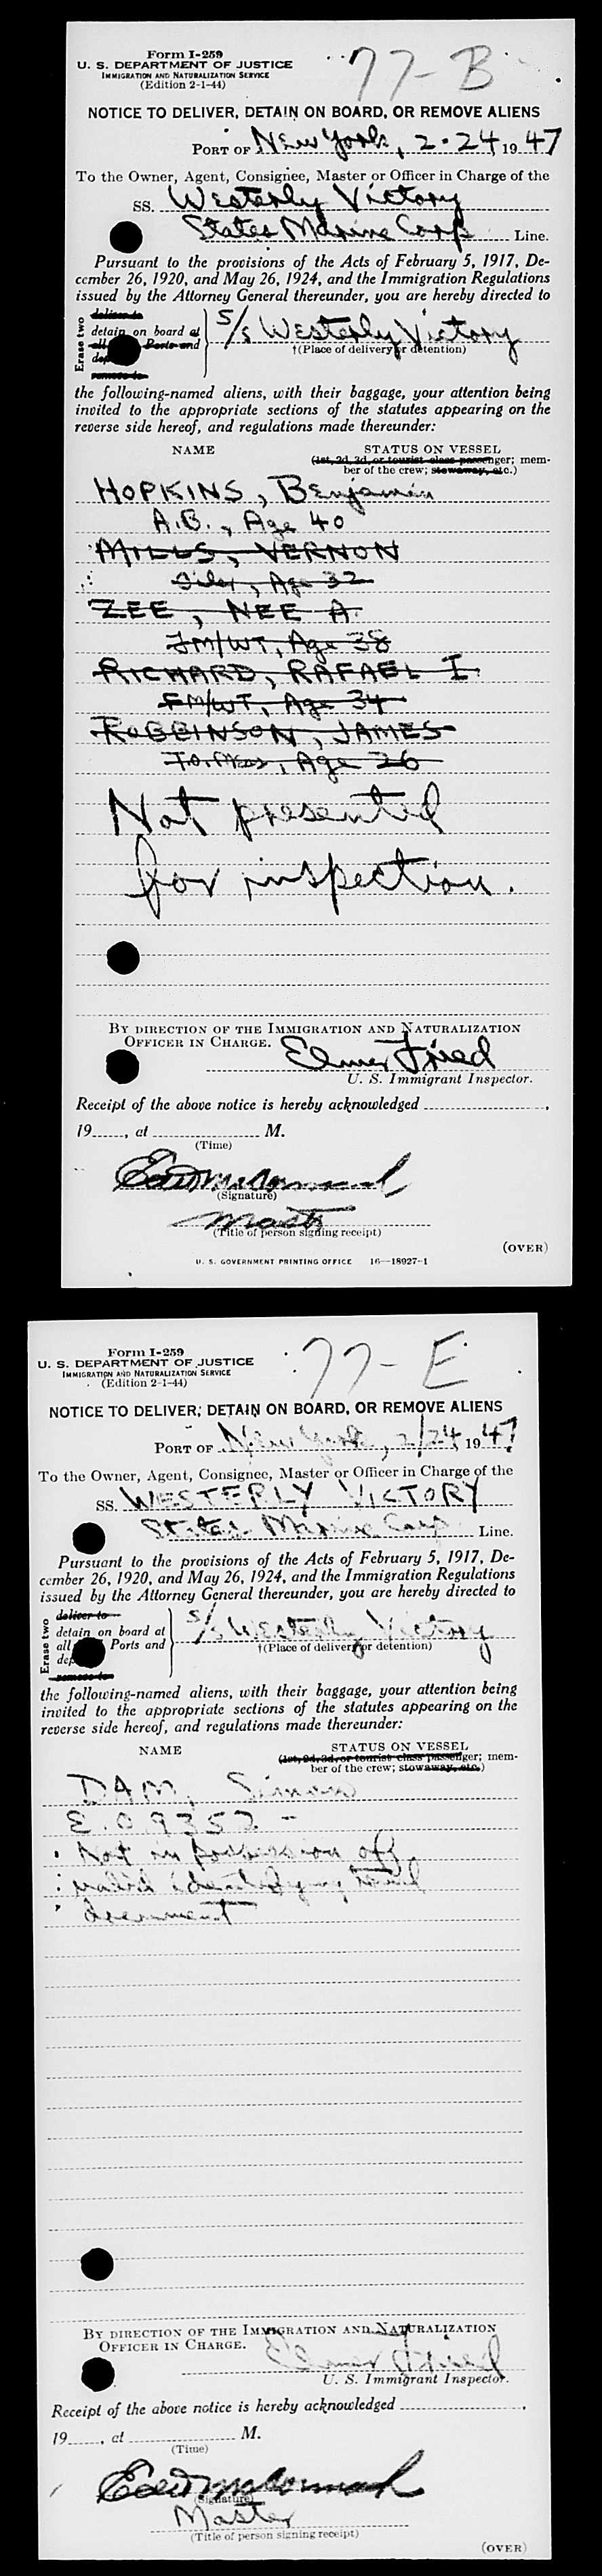 Form I-259
U. S. DEPARTMENT OF JUSTICE
IMMIGRATION AND NATURALIZATION SERVICE
(Edition 2-1-44)
77-B
NOTICE TO DELIVER, DETAIN ON BOARD, OR REMOVE ALIENS
PORT OF New York, 2-24, 1947
To the Owner, Agent, Consignee, Master or Officer in Charge of the
SS. Westerly Victory
States Marine Corp Line.
Pursuant to the provisions of the Acts of February 5, 1917, De-
cember 26, 1920, and May 26, 1924, and the Immigration Regulations
issued by the Attorney General thereunder, you are hereby directed to
Erase two
deliver to
detain on board at
all Ports and
remove to
S/s Westerly Victory
†(Place of delivery or detention)
the following-named aliens, with their baggage, your attention being
invited to the appropriate sections of the statutes appearing on the
reverse side hereof, and regulations made thereunder:
NAME STATUS ON VESSEL
(1st, 2d, 3d, or tourist class passenger; mem-
ber of the crew; stowaway, etc.)
HOPKINS, Benjamin
A.B., Age 40
MILLS, VERNON
Oiler, Age 32
ZEE, NEE A.
FM/WT, Age 38
RICHARD, RAFAEL I.
FM/WT, Age 34
ROBBINSON, JAMES
Age 26
Not presented
for inspection.
BY DIRECTION OF THE IMMIGRATION AND NATURALIZATION
OFFICER IN CHARGE.
Elmer Fried
U. S. Immigrant Inspector.
Receipt of the above notice is hereby acknowledged
19 , at M.
(Time)
Edw McCormack
(Signature)
Master
(Title of person signing receipt)
(OVER)
U. S. GOVERNMENT PRINTING OFFICE 16—18927-1
Form I-259
U. S. DEPARTMENT OF JUSTICE
IMMIGRATION AND NATURALIZATION SERVICE
(Edition 2-1-44)
77-E
NOTICE TO DELIVER, DETAIN ON BOARD, OR REMOVE ALIENS
PORT OF New York, 2/24, 1947
To the Owner, Agent, Consignee, Master or Officer in Charge of the
SS. WESTERLY VICTORY
States Marine Corp Line.
Pursuant to the provisions of the Acts of February 5, 1917, De-
cember 26, 1920, and May 26, 1924, and the Immigration Regulations
issued by the Attorney General thereunder, you are hereby directed to
Erase two
deliver to
detain on board at
all Ports and
remove to
S/s Westerly Victory
†(Place of delivery or detention)
the following-named aliens, with their baggage, your attention being
invited to the appropriate sections of the statutes appearing on the
reverse side hereof, and regulations made thereunder:
NAME STATUS ON VESSEL
(1st, 2d, 3d, or tourist class passenger; mem-
ber of the crew; stowaway, etc.)
DAM, Simon
E.O 9352 -
Not in possession of
valid identifying travel
document
BY DIRECTION OF THE IMMIGRATION AND NATURALIZATION
OFFICER IN CHARGE.
Elmer Fried
U. S. Immigrant Inspector.
Receipt of the above notice is hereby acknowledged
19 , at M.
(Time)
Edw McCormack
(Signature)
Master
(Title of person signing receipt)
(OVER)